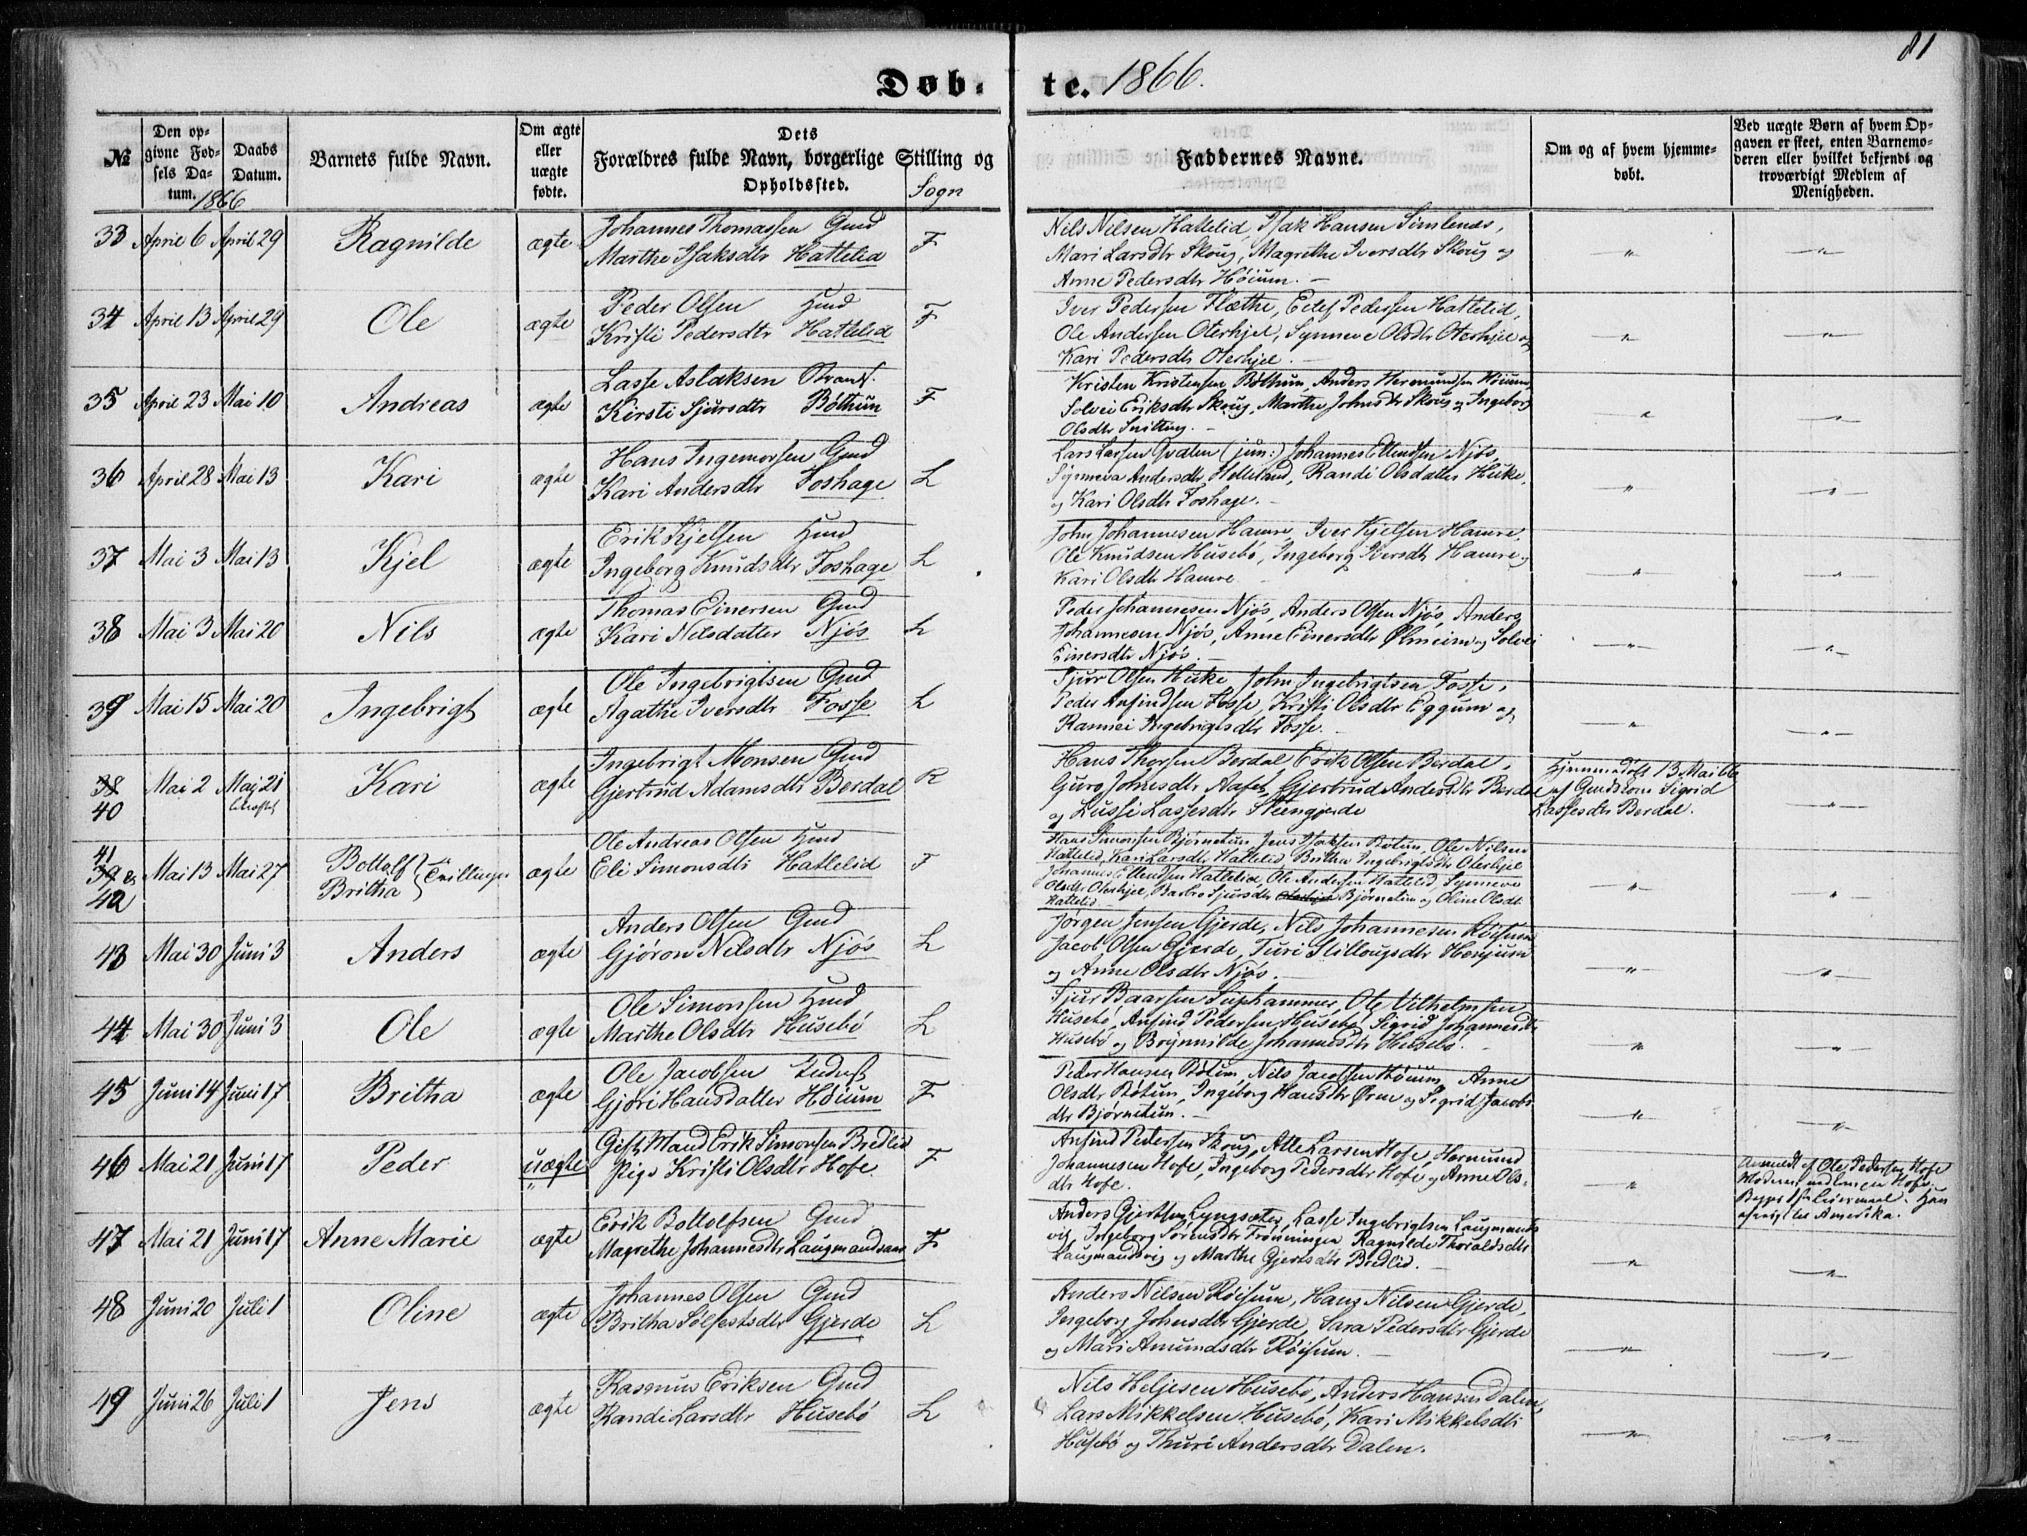 81
Døb- te. 1866.
№
Den opgivne Fødsels Datum. 1866
Daabs Datum.
Barnets fulde Navn.
Om ægte eller uægte fødte.
Dets Forældres fulde Navn, borgerlige Stilling og Opholdssted.
Sogn
Faddernes Navne.
Om og af hvem hjemmedøbt.
Ved uægte Børn af hvem Opgaven er skeet, enten Barnemoderen eller hvilket bekjendt og troværdigt Medlem af Menigheden.
33 April 6 April 29 Ragnilde ægte Johannes Thomassen Gmd F
Marthe Isaksdtr Hattelid
Nils Nilsen Hattelid, Isak Hansen Simlenæs,
Mari Larsdtr Skoug, Magrethe Iversdtr Skoug og
Anne Pedersdtr Høium. —
34 April 13 April 29 Ole ægte Peder Olsen Hmd F
Kristi Pedersdtr Hattelid
Iver Pedersen Flæthe, Eilef Pedersen Hattelid,
Ole Andersen Oterhjel, Synneve Olsdtr Oterhjel og
Kari Pedersdtr Oterhjel. —
35 April 23 Mai 10 Andreas ægte Lasse Aslaksen Strand. F
Kersti Sjursdtr Bøthun
Kristen Kristensen Bøthun, Anders Hermundsen Høium,
Solvei Eriksdtr Skoug, Marthe Johnsdtr Skoug og Ingeborg
Olsdtr
36 April 28 Mai 13 Kari ægte Hans Ingemorsen Gmd L
Kari Andersdtr Foshage
Lars Larsen Qvalen (jun:) Johannes Ellendsen Njøs,
Synneva Andersdtr, Randi Olsdatter Huke,
og Kari Olsdtr Foshage. —
37 Mai 3 Mai 13 Kjel ægte Erik Kjelsen Hmd L
Ingeborg Knudsdtr Foshage
John Johannesen Hamre, Iver Kjelsen Hamre,
Ole Knudsen Husebø, Ingeborg Iversdtr Hamre og
Kari Olsdtr Hamre
38 Mai 3 Mai 20 Nils ægte Thomas Einersen Gmd L
Kari Nilsdatter Njøs
Peder Johannesen Njøs, Anders Olsen Njøs, Anders
Johannesen Njøs, Anne Einersdtr Ølmeim og Solvei
Einersdtr Njøs. —
39 Mai 15 Mai 20 Ingebrigt ægte Ole Ingebrigtsen Gmd L
Agathe Iversdtr Fosse
Sjur Olsen Huke John Ingebrigtsen Fosse,
Peder Ansindsen Fosse, Kristi Olsdtr Eggum og
Rannei Ingebrigtsdtr Fosse. —
38 40 Mai 2 Mai 21 Kari ægte Ingebrigt Monsen Gmd R
Gjertrud Adamsdtr Berdal
Hans Thorsen Berdal Erik Olsen Berdal,
Guro Johnsdtr, Gjertrud Andersdtr Berdal
og Lussi Lassesdtr Steengjerde
Hjemmedøbt 13 Mai 66
af Gmdskone Sigrid
Lassesdtr Berdal.
41 39 & 42 Mai 13 Mai 27 Bottolf Britha Tvillinger ægte Ole Andreas Olsen Hmd F
Eli Simonsdtr Hattelid
Hans Simonsen Bjørnetun, Jens Isaksen Røtum, Ole Nilsen
Hattelid, Kari Larsdtr Hattelid, Britha Ingebrigtsdtr Oterhjel
Johannes Ellensen Hattelid, Ole Andersen Hattelid, Synneve
Olsdtr Oterhjel, Barbro Sjursdtr Bjørnetun og Oline Olsdtr
Hattelid —
43 Mai 30 Juni 3 Anders ægte Anders Olsen Gmd L
Gjøron Nilsdtr Njøs
Jørgen Jensen Gjerde, Nils Johannesen Røisum
Jacob Olsen Gjerde, Turi Stillougsdtr Henjum
og Anne Olsdtr Njøs. —
44 Mai 30 Juni 3 Ole ægte Ole Simonsen Hmd L
Marthe Olsdtr Husebø
Sjur Baarsen, Ole Vilhelmsen
Husebø, Ansind Pedersen Husebø, Sigrid Johannesdtr
Husebø og Brynnilde Johannesdtr Husebø. —
45 Juni 14 Juni 17 Britha ægte Ole Jacobsen Inderst F
Gjøri Hansdatter Høium
Peder Hansen Røtum Nils Jacobsen Høium Anne
Olsdtr Røtum, Ingeborg Hansdtr Ørne og Sigrid Jacobs
dtr Bjørnetun. —
46 Mai 21 Juni 17 Peder uægte Gift Mand Erik Simonsen Bredlid F
Pige Kristi Olsdtr Hofe.
Ansind Pedersen Skoug, Atle Larsen Hofe, Hermund
Johannesen Hofe, Ingeborg Pedersdtr Hofe og Anne Ols-
dtr Hofe.
Anmeldt af Ole Pedersen Hofe
Moderen Hofe.
Begges 1ste Leiermaal. Han
afreist til Amerika.
47 Mai 21 Juni 17 Anne Marie ægte Erik Bottolfsen Gmd F
Magrethe Johannesdtr
Anders Gjertsen Lyngsæter, Lasse Ingebrigtsen Laugmands
vig, Ingeborg Sørensdtr Frønningen Ragnilde Thoraldsdtr
Laugmandsvig og Marthe Gjertsdtr Bredlid. —
48 Juni 20 Juli 1 Oline ægte Johannes Olsen Gmd L
Britha Sølfestsdtr Gjerde
Anders Nilsen Røisum, Hans Nilsen Gjerde,
Ingeborg Johnsdtr Gjerde, Sara Pedersdtr Gjerde
og Mari Amundsdtr Røisum. —
49 Juni 26 Juli 1 Jens ægte Rasmus Eriksen Gmd L
Randi Larsdtr Husebø
Nils Heljesen Husebø, Anders Hansen Dalen,
Lars Mikkelsen Husebø, Kari Mikkelsdtr
Husebø og Thuri Andersdtr Dalen.